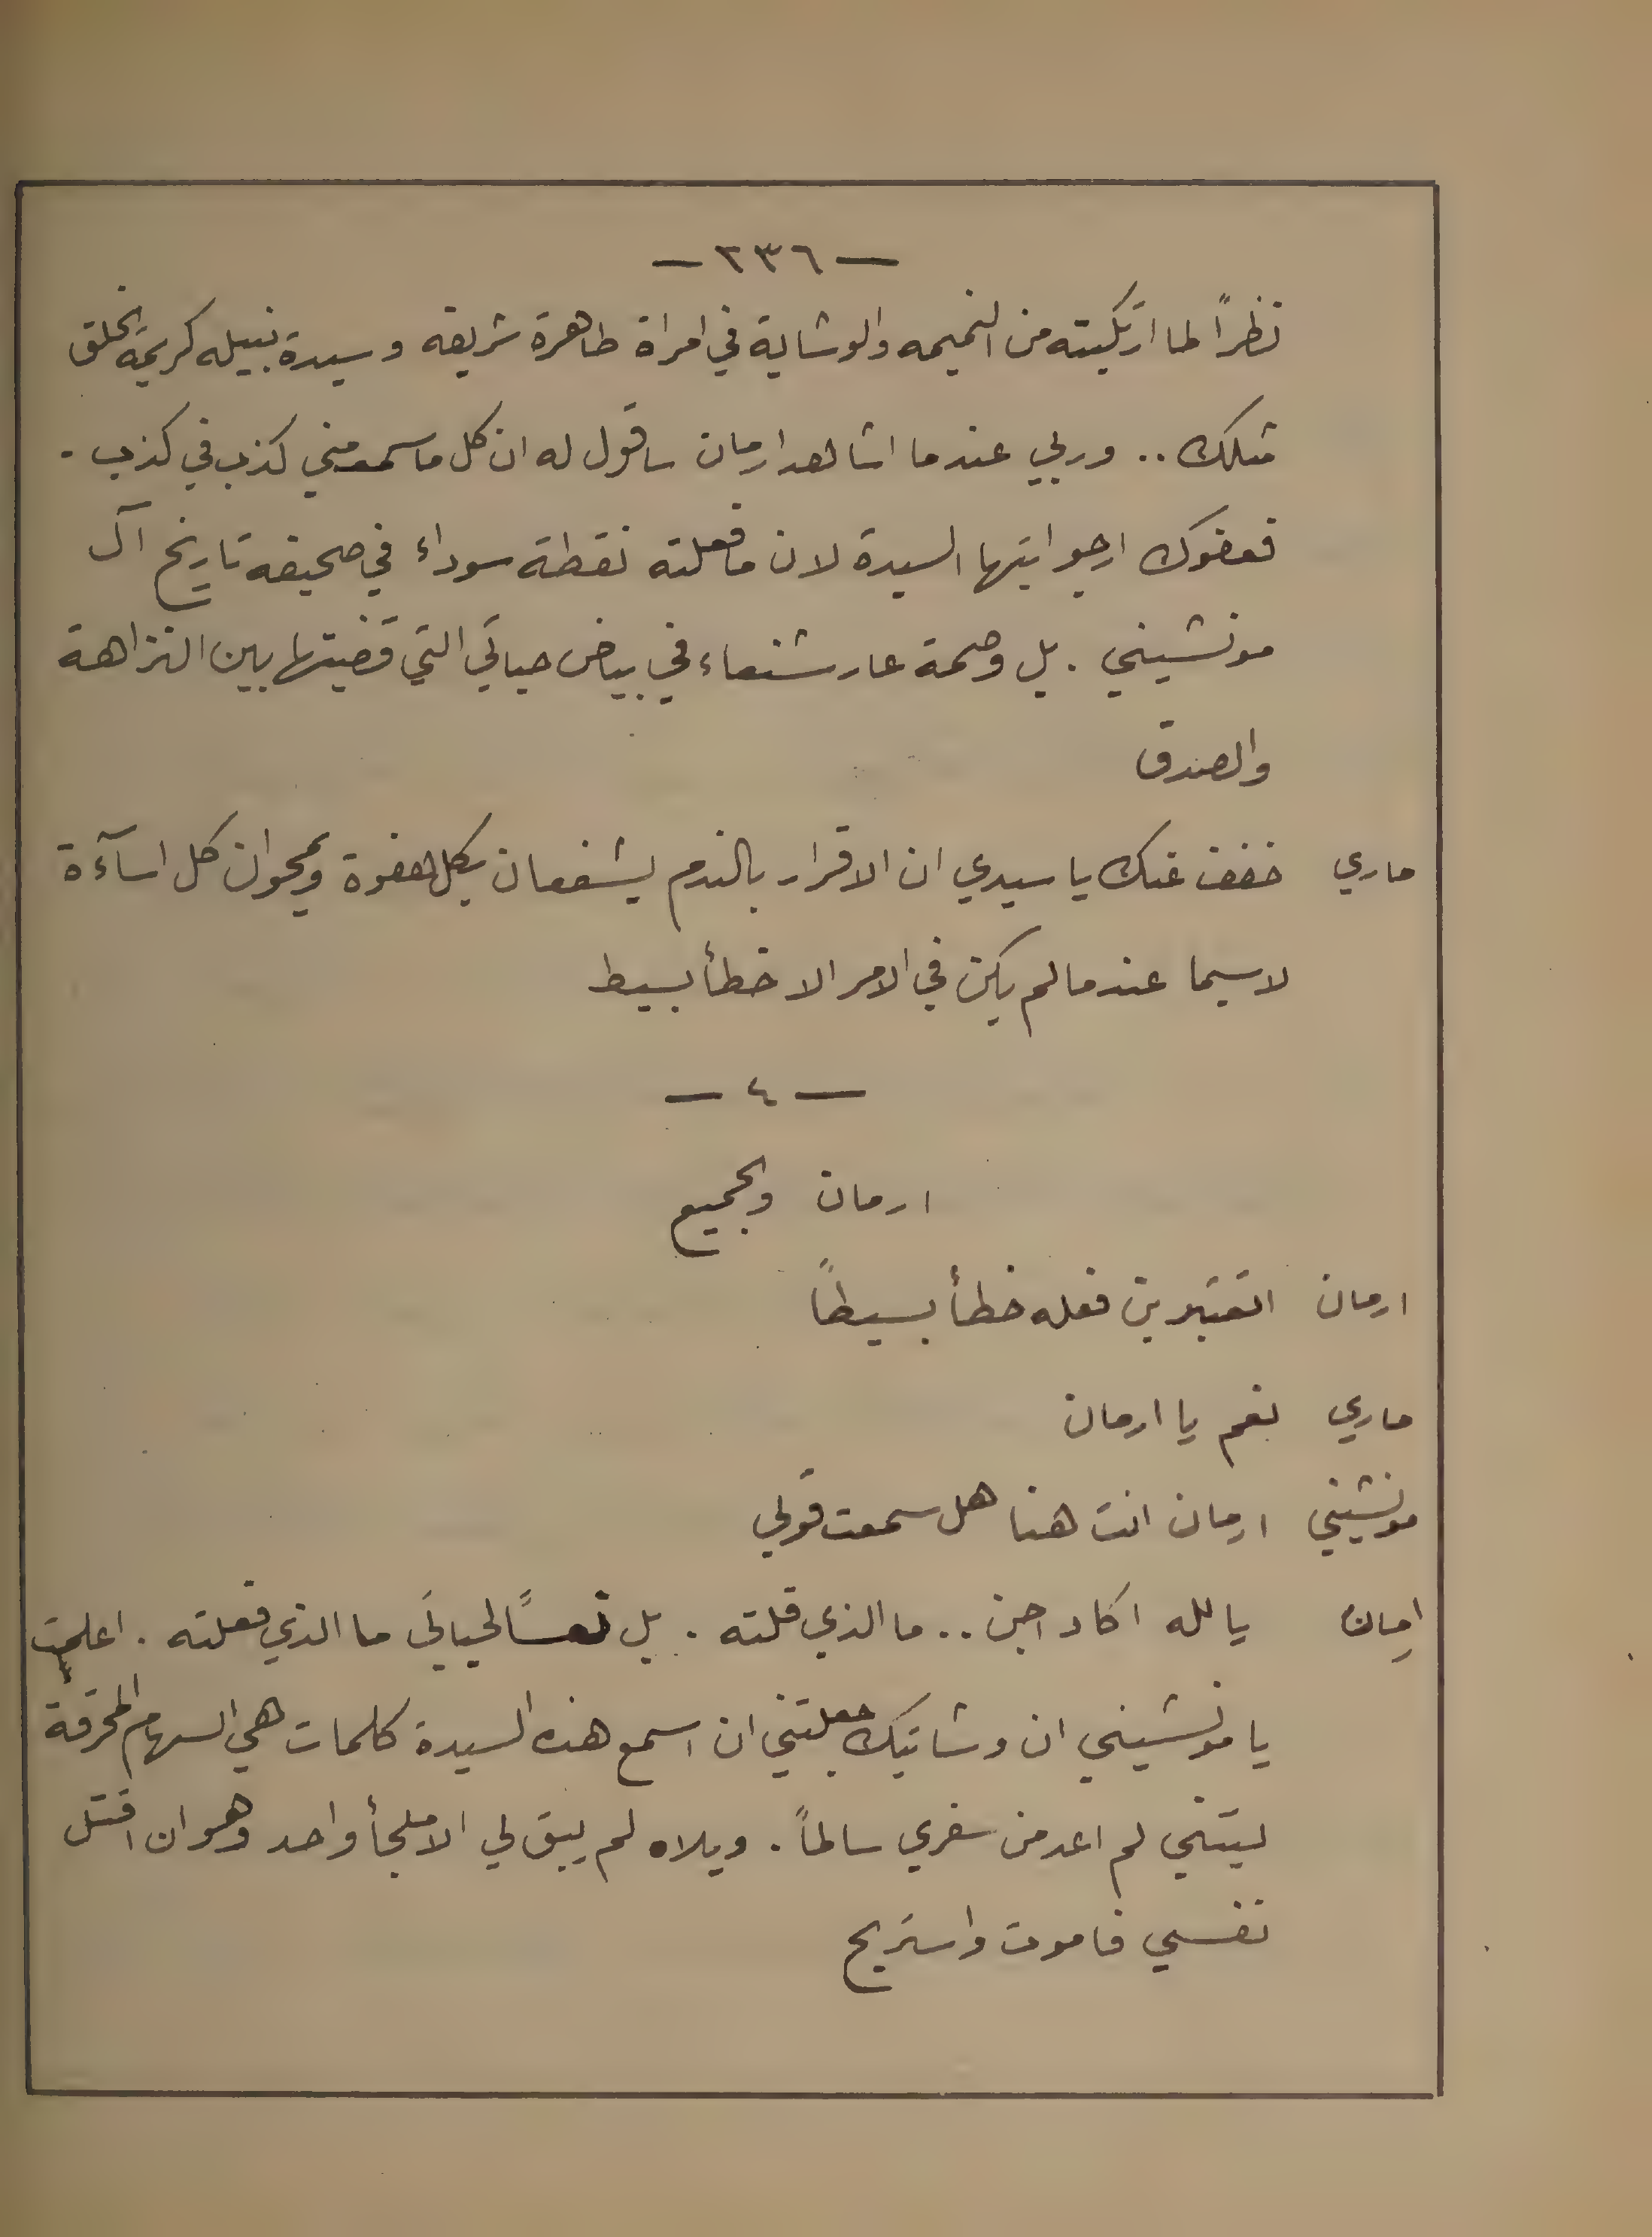 — ٢٣٦ —
نظراً لما ارتكبته من النميمه والوشاية في امراة طاهرة شريفه وسيدة نبيله كريمة الخلق
مثلك .. وربي عندما اشاهد ارمان ساقول له ان كل ما سمعه مني كذب في كذب .
فعفوك ارجو ايتها السيدة لان ما فعلته نقطة سوداء في صحيفه تاريخ آل
مونشيني . بل وصمة عار شنعاء في بياض حياتي التي قضيتها بين النزاهة
والصدق
ماري خفف عنك يا سيدي ان الاقرار بالندم يشفعان بكل هفوة ويمحوان كل اسآءة
لاسيما عندما لم يكن في الامر الا خطأ بسيط
— ٤ —
ارمان والجميع
ارمان اتعتبرين فعله خطأ بسيطاً
ماري نعم يا ارمان
مونشيني ارمان انت هنا هل سمعت قولي
ارمان يا لله اكاد اجن .. ما الذي قلته . بل تعساً لحياتي ما الذي فعلته . اعلمت
يا مونشيني ان وشايتك جعلتني ان اسمع هذه السيدة كلمات هي السهام المحرقة
ليتني لم اعد من سفري سالماً . ويلاه لم يبق لي الا ملجأ واحد وهو ان اقتل
نفسي فاموت واستريح